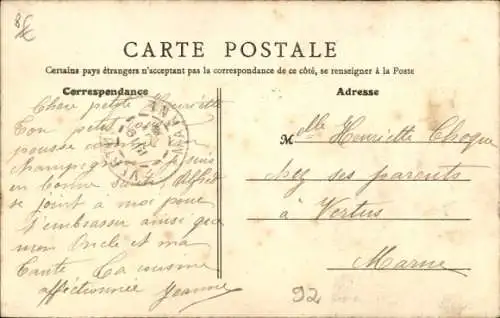 CARTE POSTALE
Certains pays étrangers n'acceptant pas la correspondance de ce côté, se renseigner à la Poste
Correspondance
Adresse
Chère petite Henriette
Ton petit
pousse comme un
champignon je suis
en bonne santé, Alfred
se joint à moi pour
t'embrasser ainsi que
mon Oncle et ma
Tante. Ta cousine
affectionnée Jeanne
Melle Henriette Choque
chez ses parents
à Vertus
Marne
92